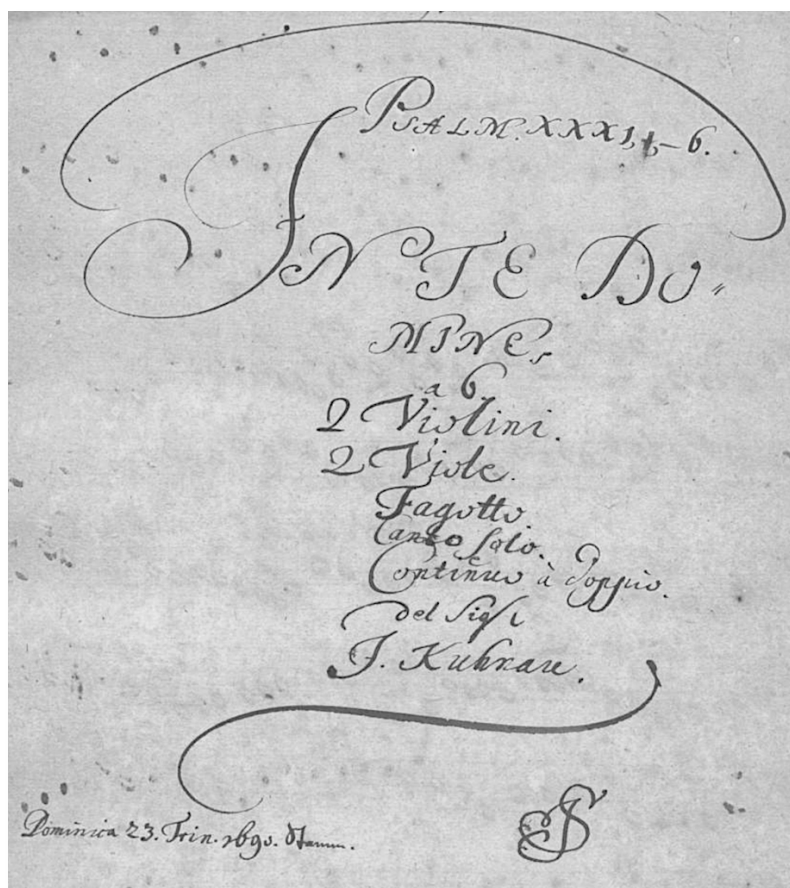 PSALM. XXXI, 1, – 6.
IN TE DO⸗
MINE,
a 6.
2 Violini.
2 Viole.
Fagotto.
Canto solo.
Continuo à doppio.
del Sigr
J. Kuhnau.
Dominica 23. Trin. 1690.